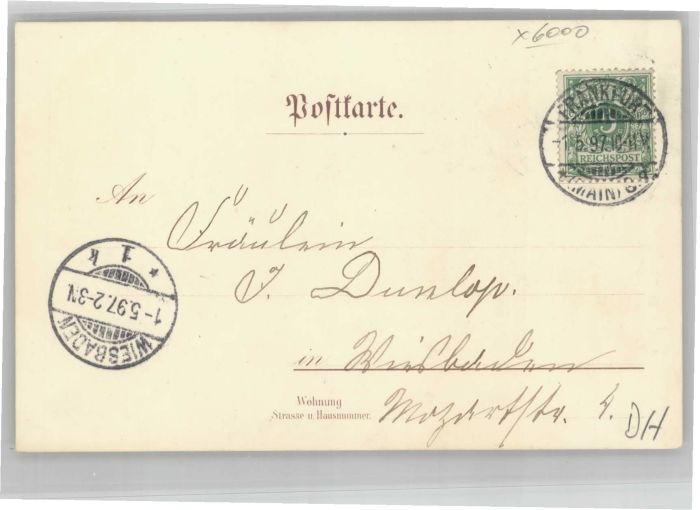 x6000
Postkarte.
FRANKFURT
5.97.10-11V.
(MAIN)
REICHSPOST
An
Fräulein
J. Dunlop.
WIESBADEN
1-5.97.2-3N.
* 1 k
in Wiesbaden
Wohnung
Strasse u. Hausnummer.
Mozartstr. 4.
DH